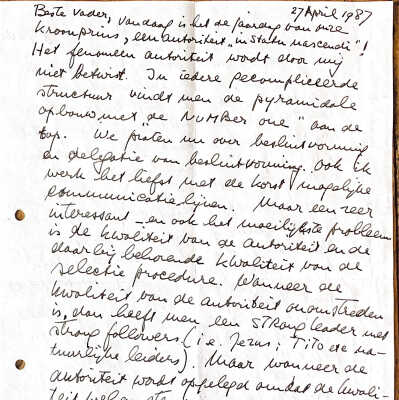 27 April 1987
Beste vader, vandaag is het de jaardag van onze
kroonprins, een autoriteit "in statu nascendi"!
Het fenomeen autoriteit wordt door mij
niet betwist. In iedere gecompliceerde
structuur vindt men de pyramidale
opbouw met de "NUMBER one" aan de
top. We praten nu over besluitvorming
en delegatie van besluitvorming. Ook ik
werk het liefst met de korst mogelijke
communicatielijnen. Maar een zeer
interessant - en ook het moeilijkste probleem
is de kwaliteit van de autoriteit en de
daarbij behorende kwaliteit van de
selectie procedure. Wanneer de
kwaliteit van de autoriteit onomstreden
is, dan heeft men een STRONG leader met
strong followers (i.e. Jezus; TITO etc na-
tuurlijke leiders). Maar wanneer de
autoriteit wordt opgelegd omdat de kwali-
teit